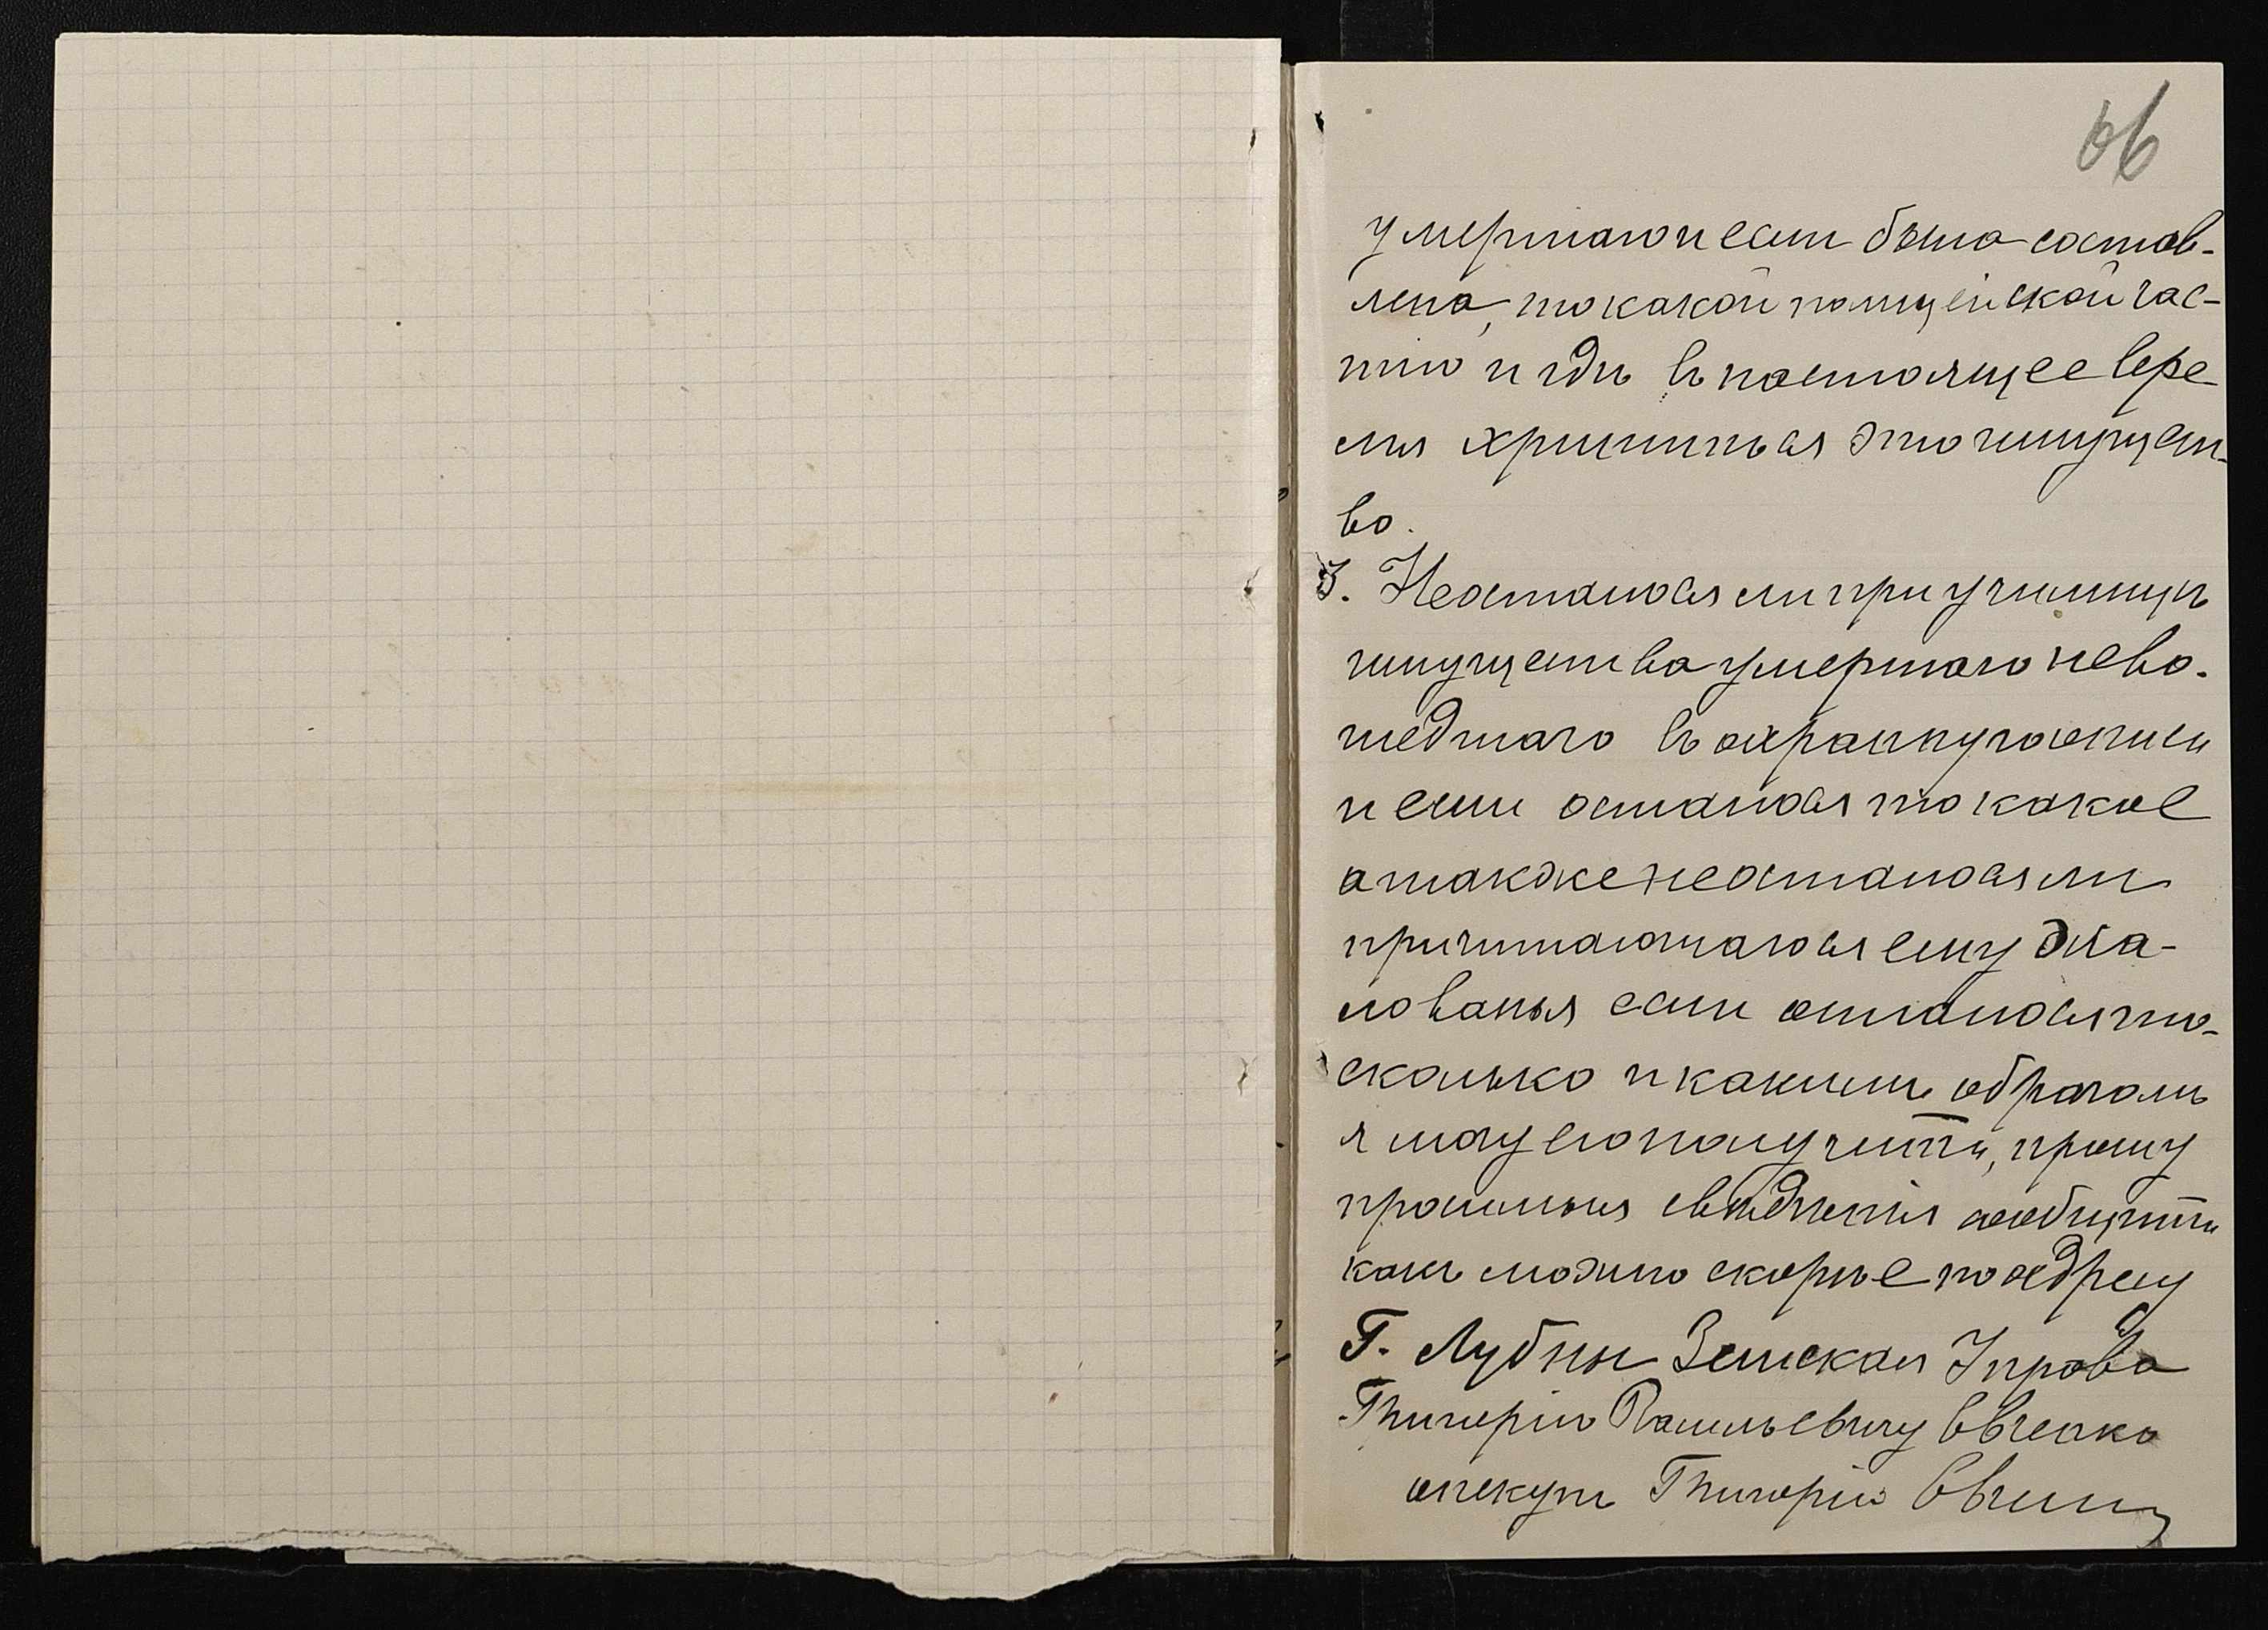 66
умершаго и если была состав-
лена, то какой полицейской час-
тью и гдѣ въ настоящее вре-
мя хранится это имущест-
во.
3. Неосталось ли при училищѣ
имущества умершаго нево-
шедшаго въ охранную опись
и если осталось то какое
а также неосталось ли
причитающагося ему жа-
лованья если осталось то
сколько и какимъ образомъ
я могу его получить, прошу
просимыя свѣдѣнія сообщить
какъ можно скорѣе по адресу
Г. Лубны Земская Управа
Григорію Васильевичу Евченко
опекунъ Григорій Евченко